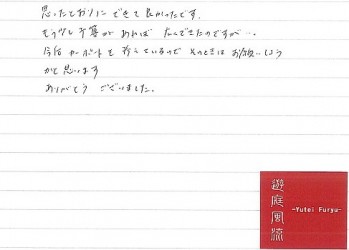 思ったとおりにできて良かったです。
もう少し予算があれば なんでもたのですが…。
今后カーポートを考えているので そのときは お願いしよう
かと思います
ありがとう ございました。
遊庭風流
-Yutei Furyu-